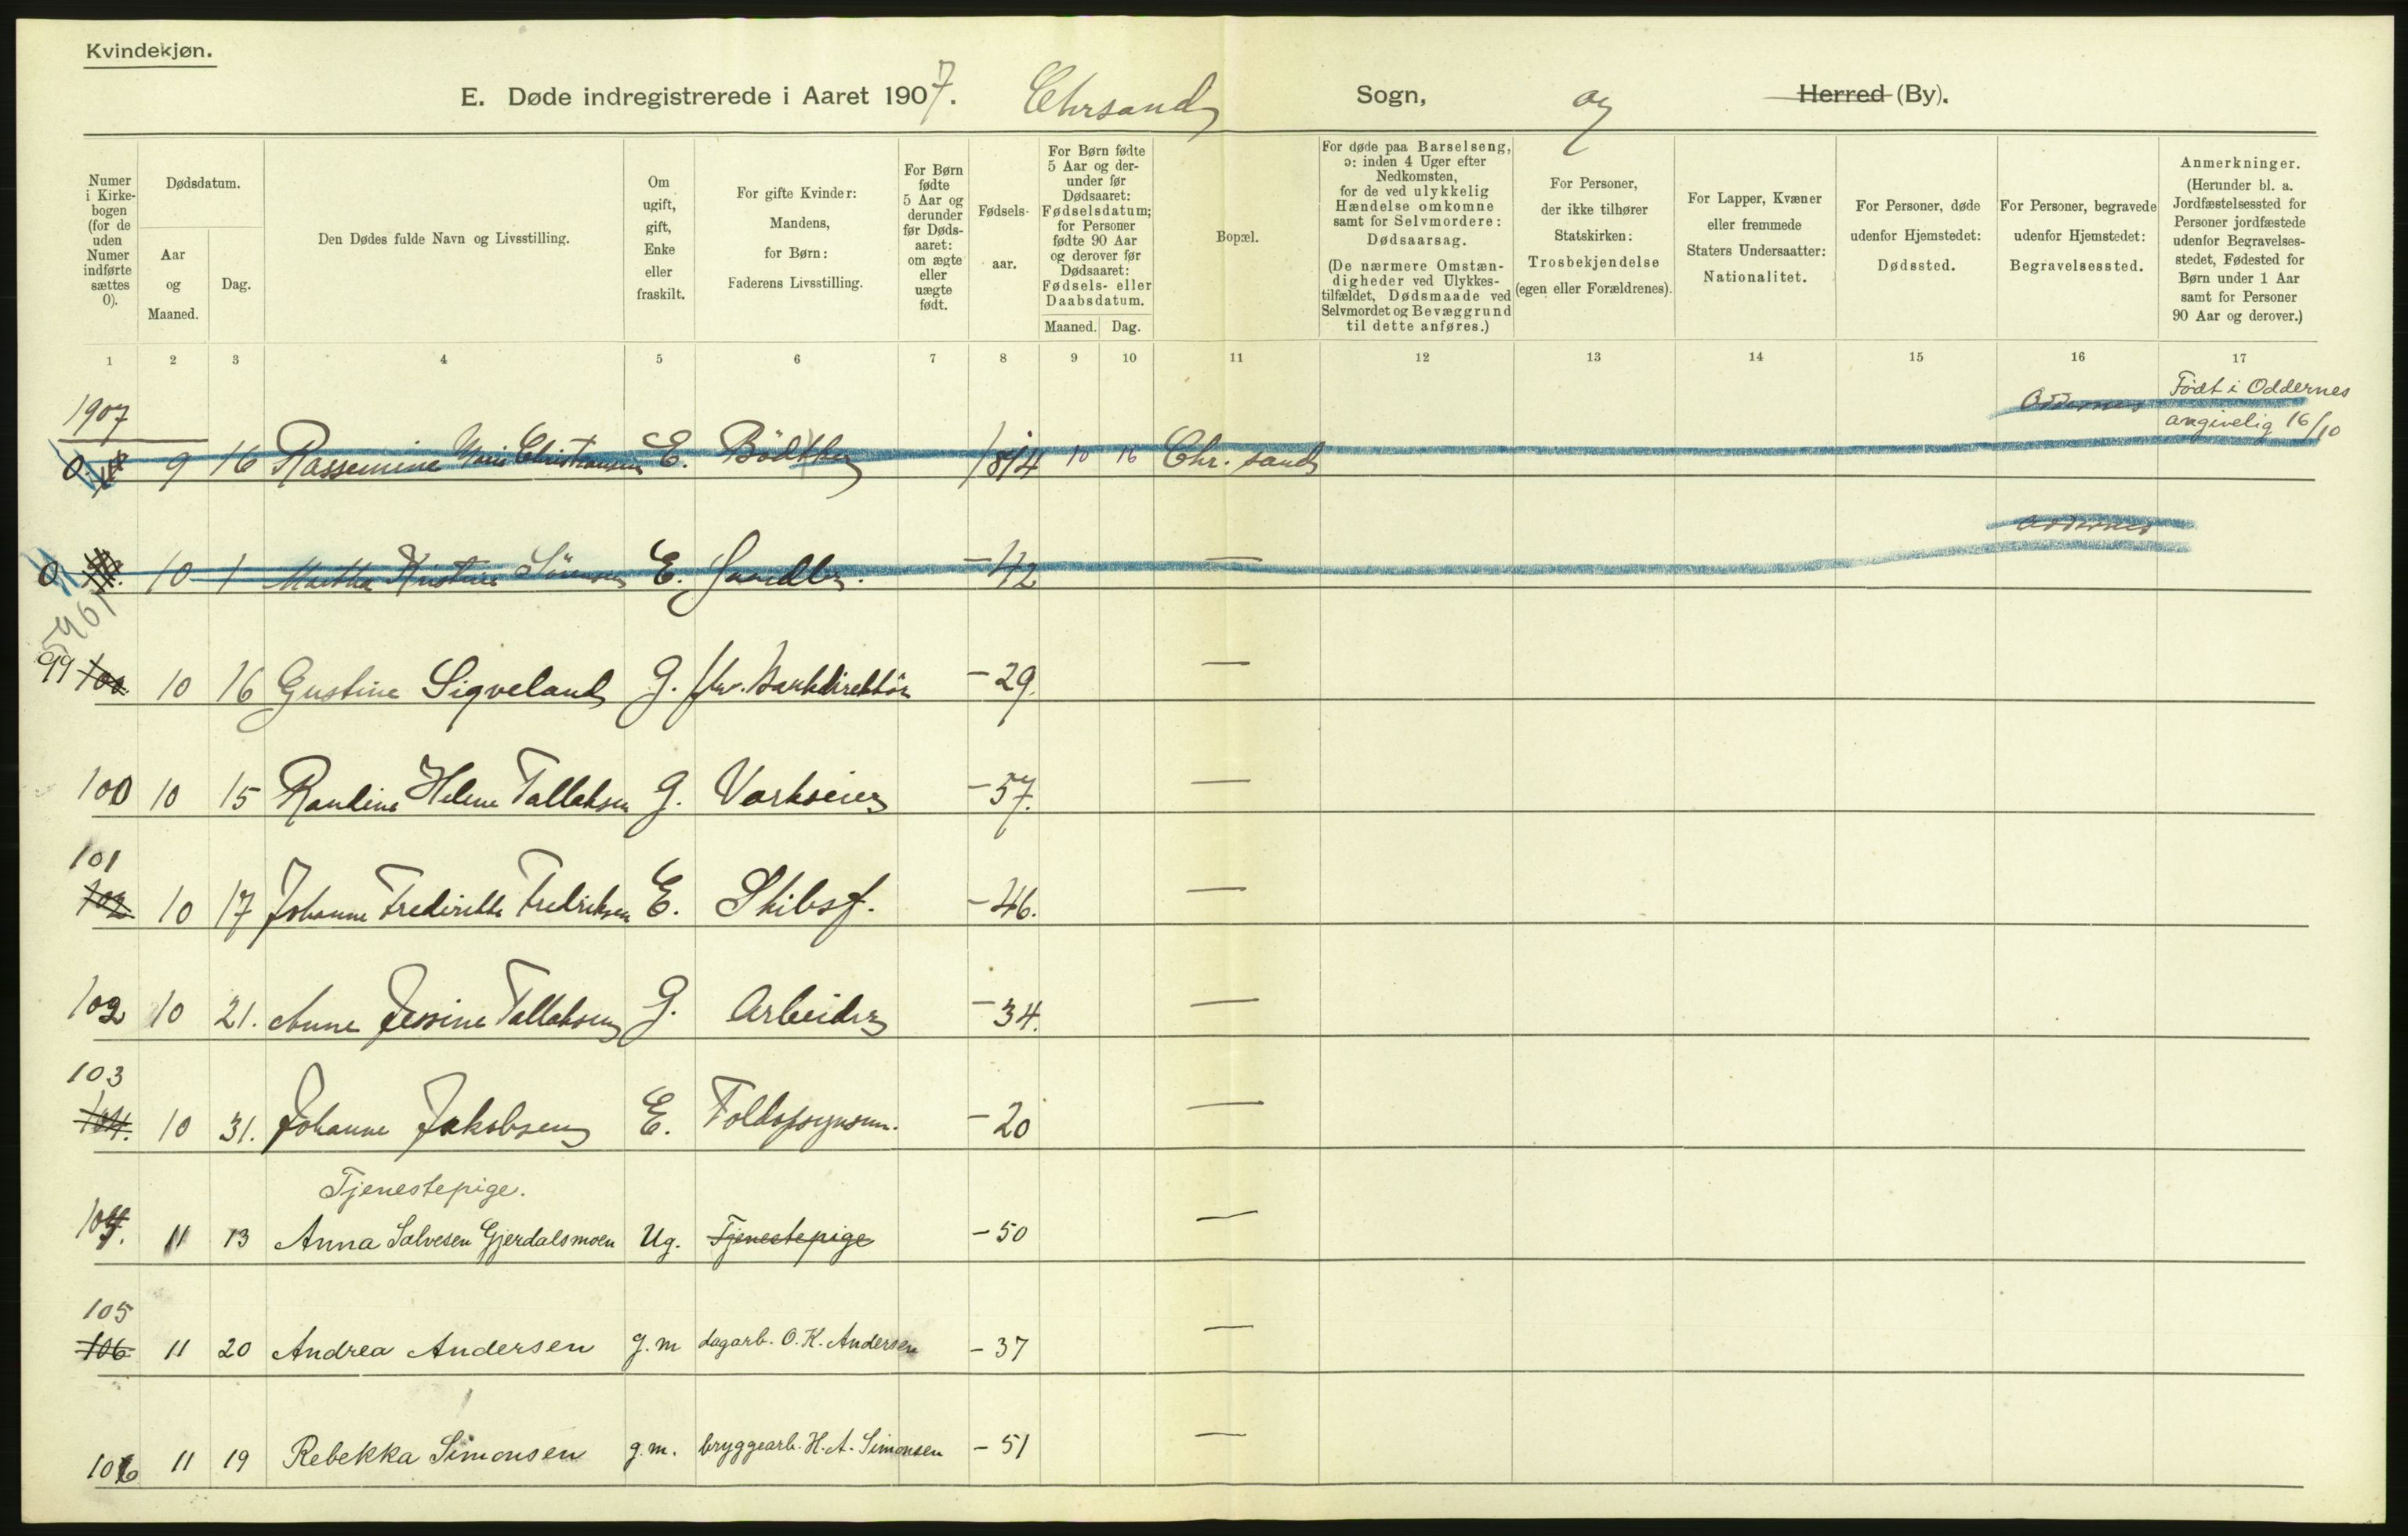 Kvindekjøn.
E. Døde indregistrerede i Aaret 1907. Chrsand Sogn, og Herred (By).
Numer i Kirke-bogen (for de uden Numer indførte sættes 0).
Dødsdatum.
Aar og Maaned.
Dag.
Den Dødes fulde Navn og Livsstilling.
Om ugift, gift, Enke eller fraskilt.
For gifte Kvinder: Mandens, for Børn: Faderens Livsstilling.
For Børn fødte 5 Aar og derunder før Døds-aaret: om ægte eller uægte født.
Fødsels-aar.
For Børn fødte 5 Aar og der-under før Dødsaaret: Fødselsdatum; for Personer fødte 90 Aar og derover før Dødsaaret: Fødsels- eller Daabsdatum.
Maaned. Dag.
Bopæl.
For døde paa Barselseng, ɔ: inden 4 Uger efter Nedkomsten, for de ved ulykkelig Hændelse omkomne samt for Selvmordere: Dødsaarsag. (De nærmere Omstæn-digheder ved Ulykkes-tilfældet, Dødsmaade ved Selvmordet og Bevæggrund til dette anføres.)
For Personer, der ikke tilhører Statskirken: Trosbekjendelse (egen eller Forældrenes).
For Lapper, Kvæner eller fremmede Staters Undersaatter: Nationalitet.
For Personer, døde udenfor Hjemstedet: Dødssted.
For Personer, begravede udenfor Hjemstedet: Begravelsessted.
Anmerkninger. (Herunder bl. a. Jordfæstelsessted for Personer jordfæstede udenfor Begravelses-stedet, Fødested for Børn under 1 Aar samt for Personer 90 Aar og derover.)
1 2 3 4 5 6 7 8 9 10 11 12 13 14 15 16 17
1907
0. 9 16 Rassemine Marie Christensen E. Bödker 1814 10 16 Chr.sand Oddernes Født i Oddernes angivelig 16/10
0 10 1 Martha Kristine Sörensen E. Handlm. -42 — Oddernes
99 100 10 16 Gustine Sigveland G. fhv. Bankdirektör -29. —
100 10 15 Randine Helene Tallaksen G. Værkseier -57. —
101
102 10 17 Johanne Fredrikke Fredriksen E. Skibsf. -46. —
102 10 21. Anne Jessine Tallaksen G. Arbeider -34. —
103
104. 10 31. Johanne Jakobsen E. Toldopsynsm. -20 —
Tjenestepige.
104. 11 13 Anna Salvesen Gjerdalsmoen Ug. Tjenestepige -50 —
105
106 11 20 Andrea Andersen g.m dagarb. O.K. Andersen -37 —
106 11 19 Rebekka Simonsen g.m. bryggearb. H.A. Simonsen -51 —